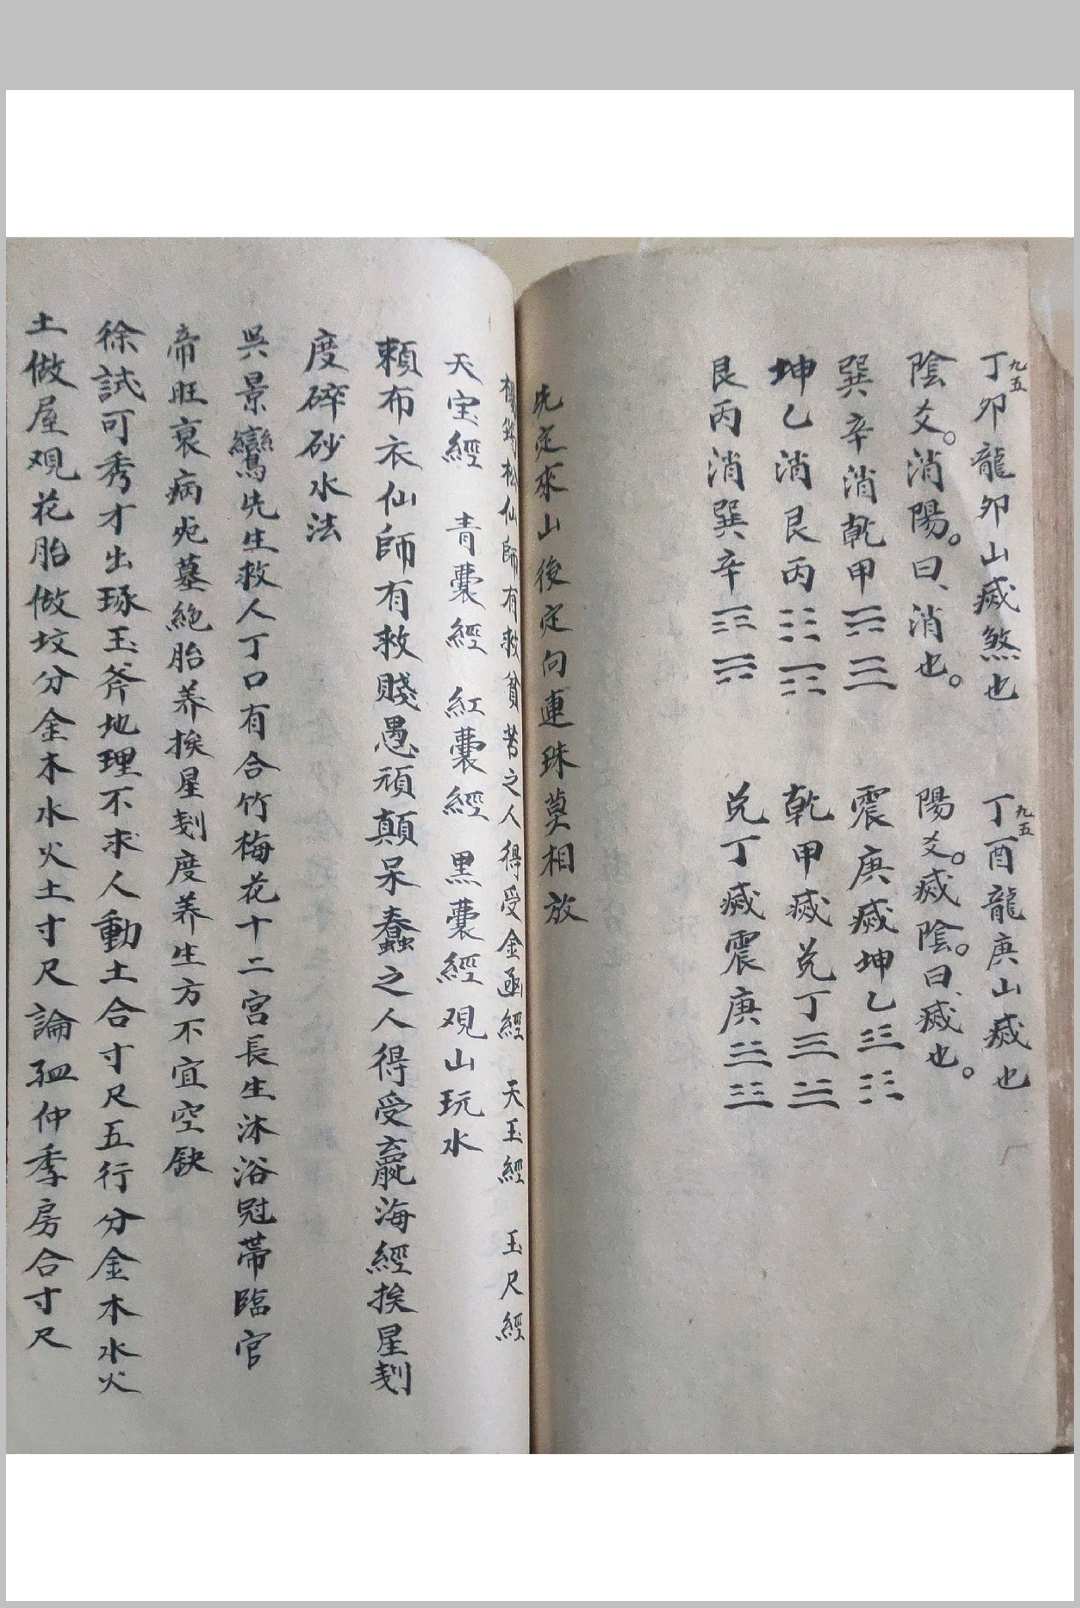 丁九五卯龍卯山㓕煞也
丁九五酉龍庚山㓕也
陰爻。消陽。曰、消也。
陽爻。㓕陰。曰、㓕也。
巽辛消乾甲
震庚㓕坤乙
坤乙消艮丙
乾甲㓕兑丁
艮丙消巽辛
兑丁㓕震庚
先定來山後定向連珠莫相放
楊 松仙師有救貧苦之人得受金函經 天玉經 玉尺經
天宝經 青囊經 紅囊經 黑囊經 观山玩水
賴布衣仙師有救賤愚頑顛呆蠢之人得受 海經挨星刻
度碎砂水法
吳景鸞先生救人丁口有合竹梅花十二宫長生沐浴冠帯臨官
帝旺衰病死墓絶胎养挨星刻度养生方不宜空缺
徐試可秀才出琢玉斧地理不求人動土合寸尺五行分金木水火
土做屋观花胎做坟分金木水火土寸尺論孤仲季房合寸尺